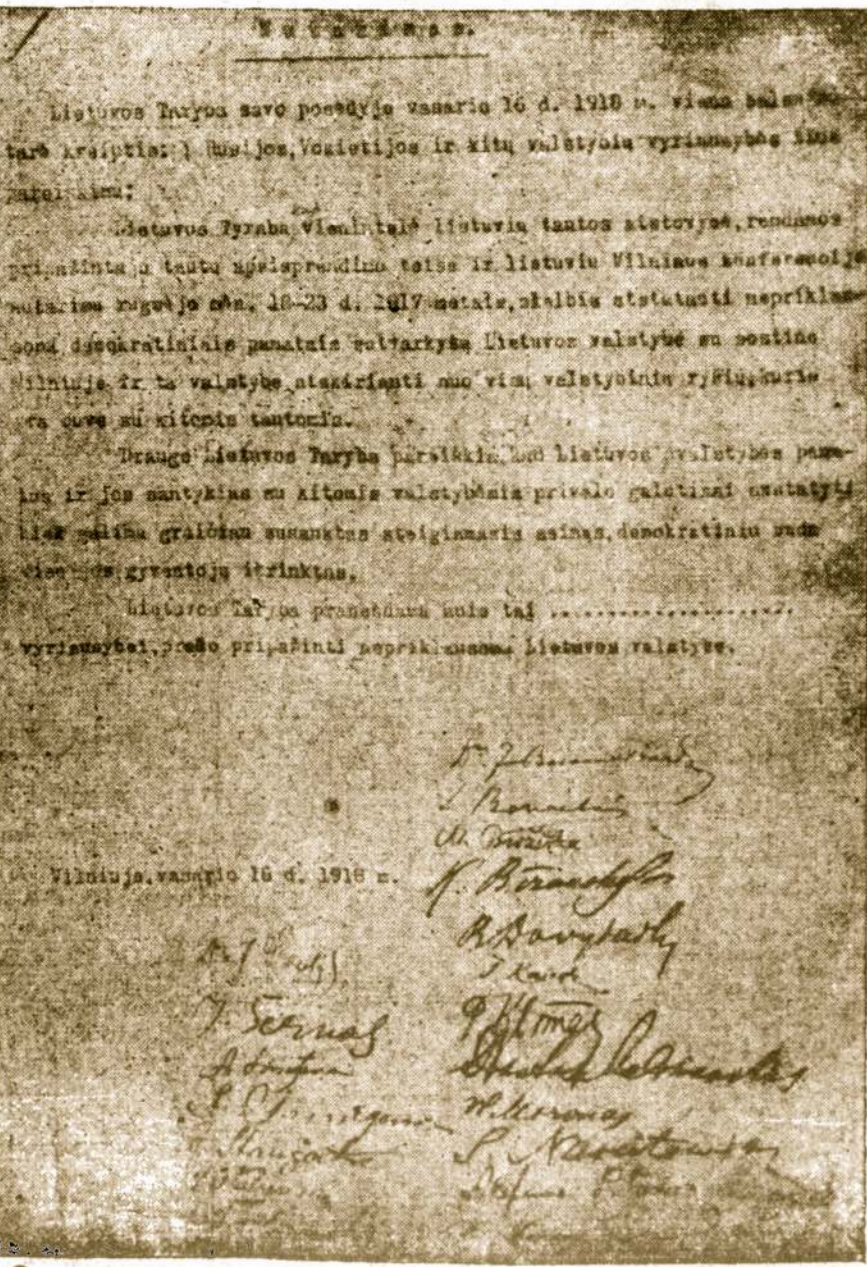 Nutarimas.
Lietuvos Taryba savo posėdyje vasario 16 d. 1918 m. vienu balsu nu-
tarė kreiptis: į Rusijos, Vokietijos ir kitų valstybių vyriausybes šiuo
pareiškimu:
Lietuvos Tyraba, kaip vienintelė lietuvių tautos atstovybė, remdamos
pripažintąja tautų apsisprendimo teise ir lietuvių Vilniaus konferencijos
nutarimu rugsėjo mėn. 18-23 d. 1917 metais, skelbia atstatanti nepriklau
somą demokratiniais pamatais sutvarkytą Lietuvos valstybę su sostine
Vilniuje ir tą valstybę atskirianti nuo visų valstybinių ryšių, kurie
yra buvę su kitomis tautomis.
Drauge Lietuvos Taryba pareiškia, kad Lietuvos valstybės pama-
tus ir jos santykius su kitomis valstybėmis privalo galutinai nustatyti
kiek galima greičiau sušauktas steigiamasis seimas, demokratiniu būdu
visų jos gyventojų išrinktas.
Lietuvos Taryba pranešdama apie tai ......................
vyriausybei, prašo pripažinti nepriklausomą Lietuvos valstybę.
Dr. J. Basanavičius
M. Biržiška
Vilniuje, vasario 16 d. 1918 m.
K. Bizauskas
J. Šernas
P. Klimas
S. Narutowicz